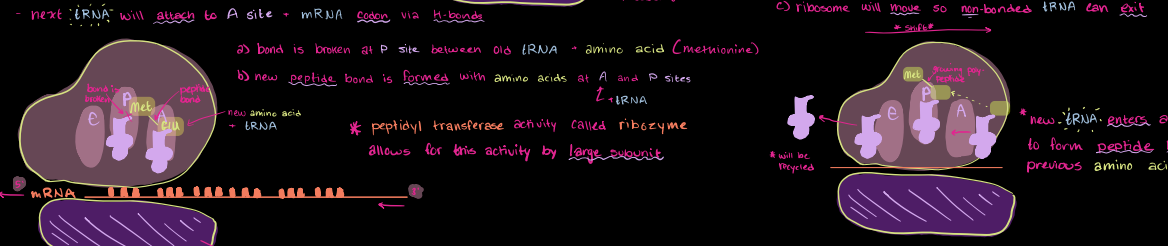 - next tRNA will attach to A site + mRNA codon via H-bonds
a) bond is broken at P site between old tRNA + amino acid (methionine)
b) new peptide bond is formed with amino acids at A and P sites
+ tRNA
* peptidyl transferase activity called ribozyme
allows for this activity by large subunit
bond is broken
peptide bond
E
P
A
Met
Glu
new amino acid
+ tRNA
5'
mRNA
3'
c) ribosome will move so non-bonded tRNA can exit
* shift *
Met
growing poly-
peptide
E
P
A
* will be
recycled
* new tRNA enters a
to form peptide
previous amino